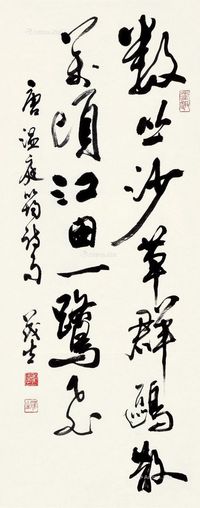 數丛沙草群鷗散
萬頃江田一鷺飛
唐温庭筠诗句